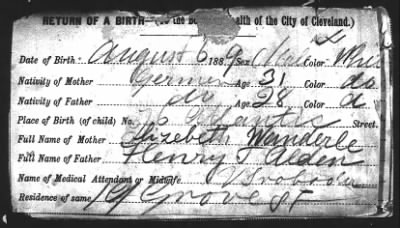 RETURN OF A BIRTH—(To the Board of Health of the City of Cleveland.)
Date of Birth: August 6 1889 Sex Male Color Whit
Nativity of Mother German Age 31 Color do
Nativity of Father do Age 28 Color d
Place of Birth (of child) No. Atlantic Street.
Full Name of Mother Elizebeth Wanderle
Full Name of Father Henry Alden
Name of Medical Attendant or Midwife
Residence of same Grove St